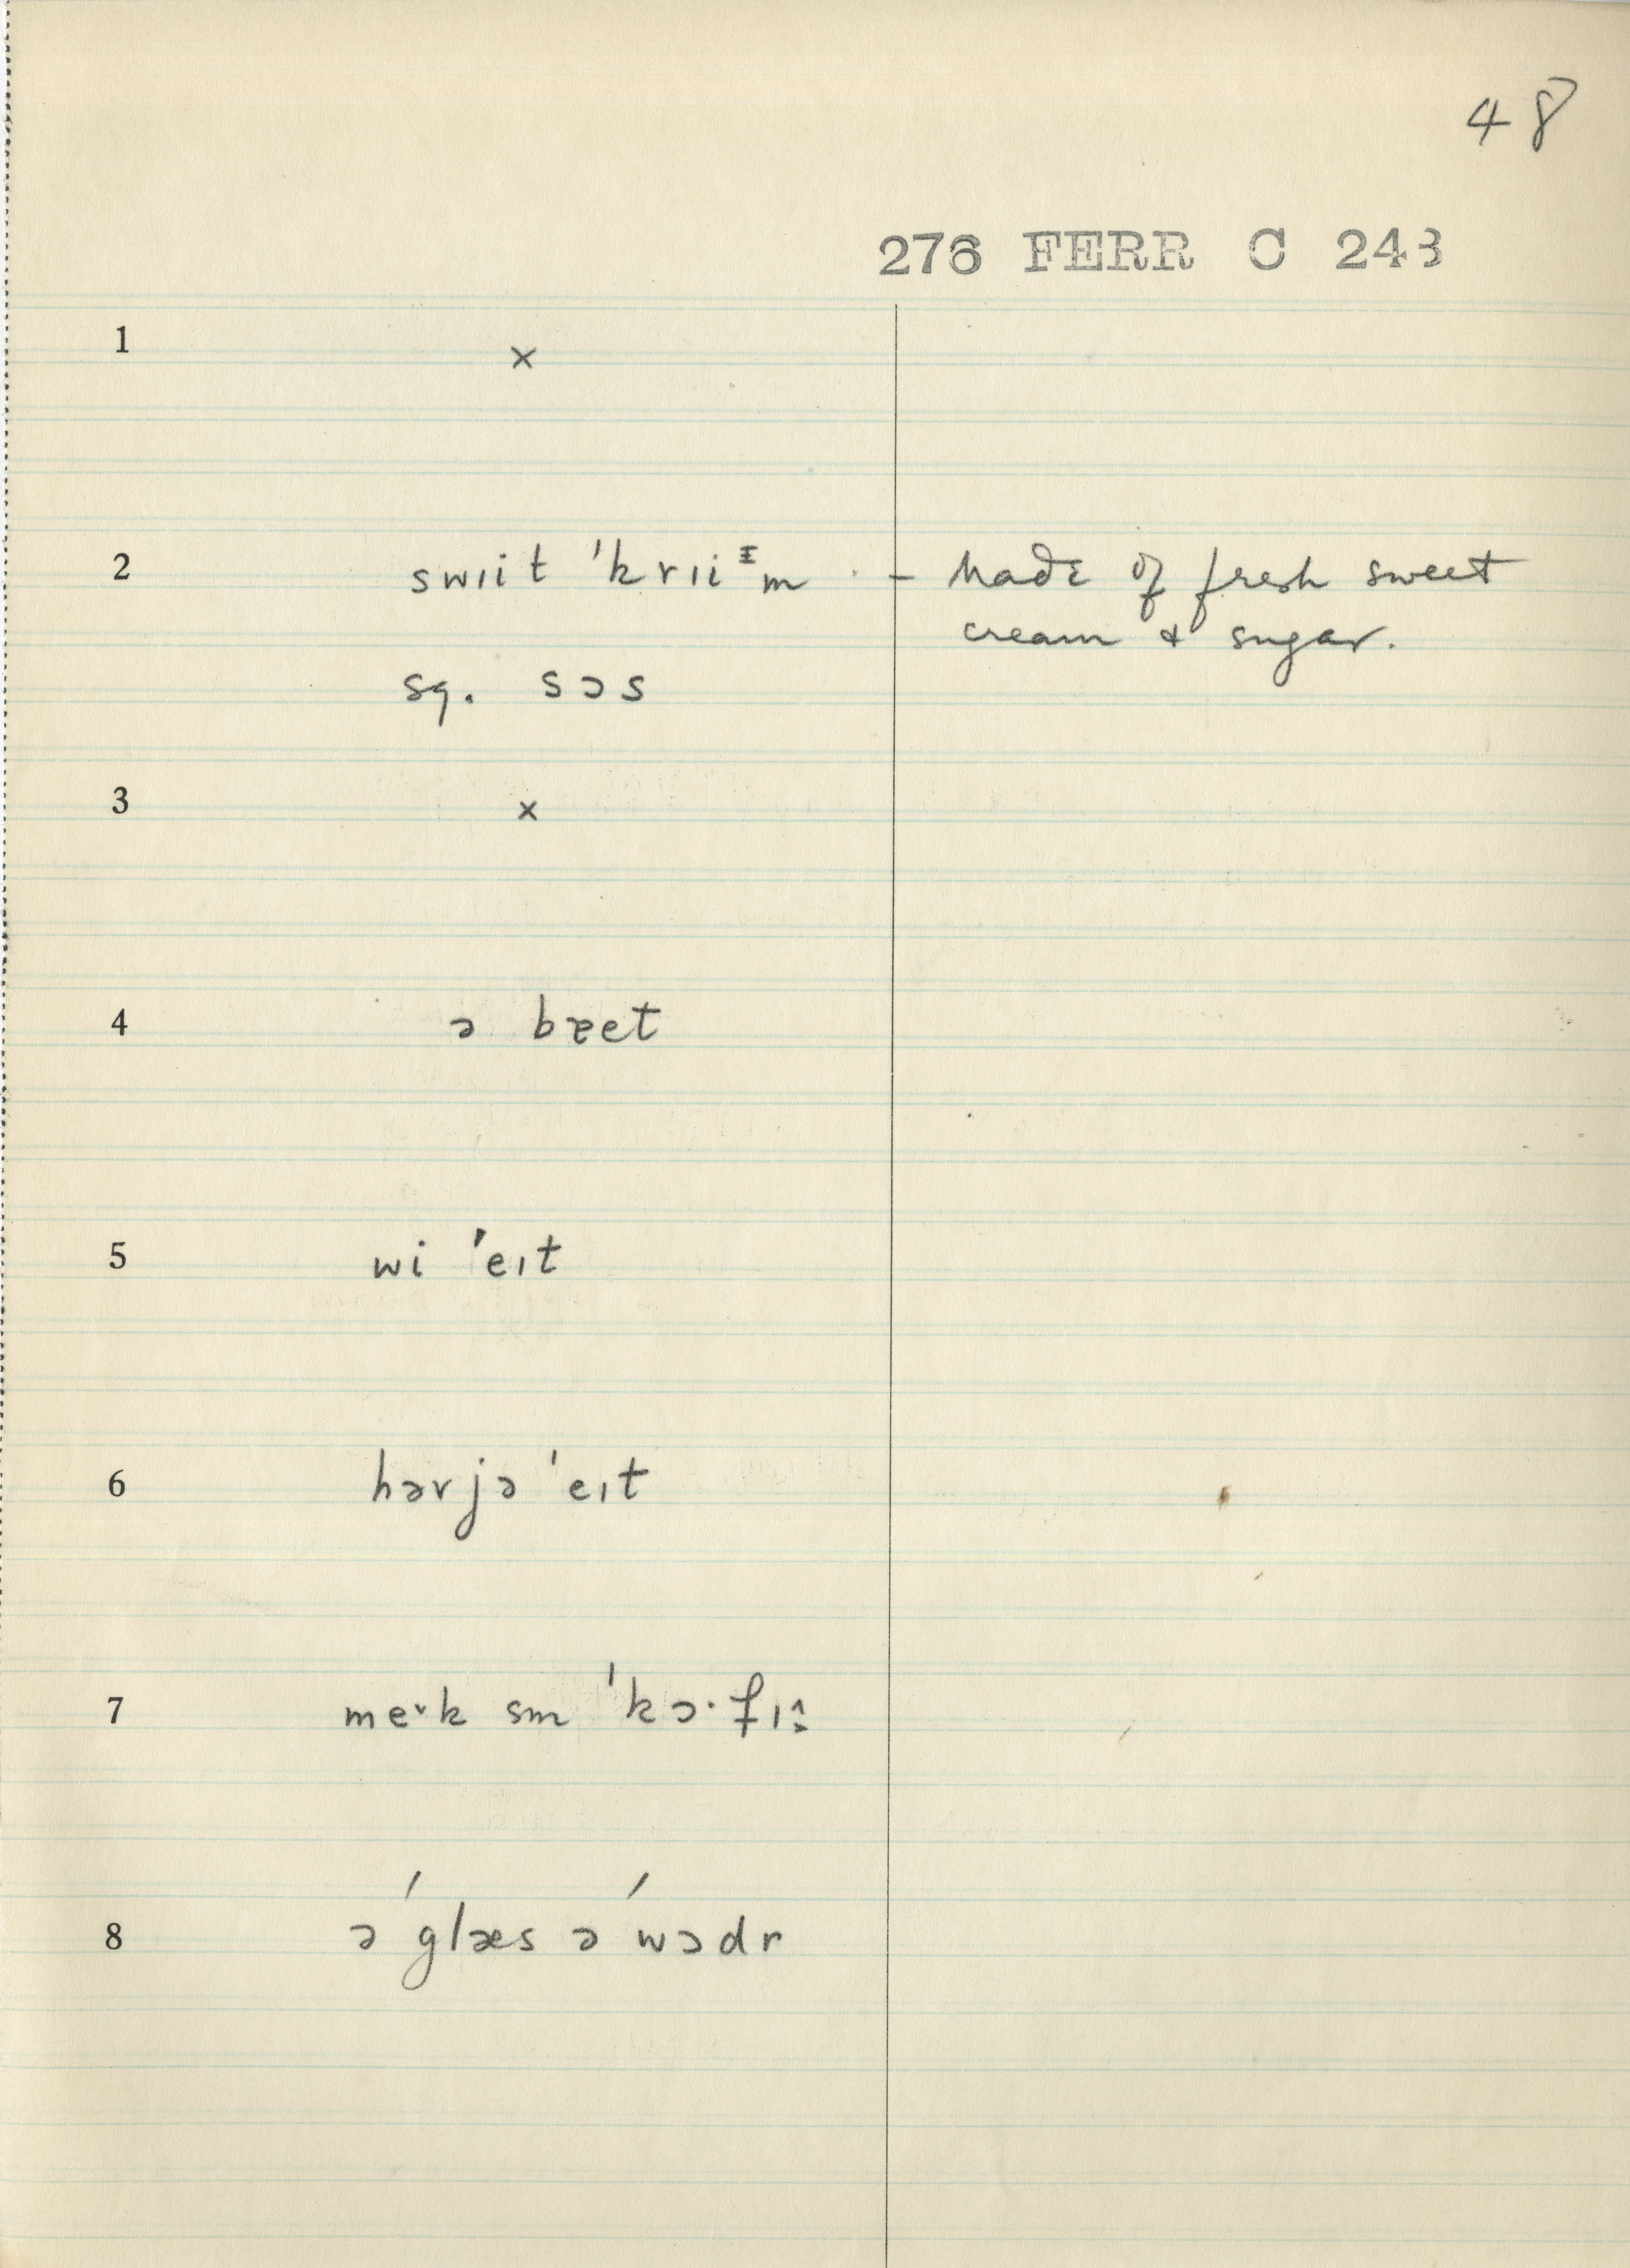 48
276 FERR C 243
1 ×
2 swɪit ˈkrɪiᵻm – Made of fresh sweet
cream & sugar.
sq. sɔs
3 ×
4 ə bɐet
5 wi ˈeɪt
6 hərjə ˈeɪt
7 me˅k sm ˈkɔ·fɪi̭
8 ə ˈglæs ə ˈwɔdr